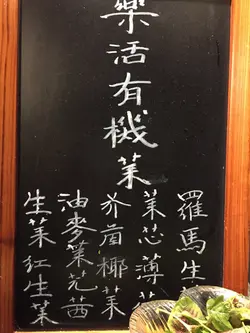 樂活有機菜
羅馬生
菜芯薄
芥蘭椰菜
油麥菜芫茜
生菜紅生菜